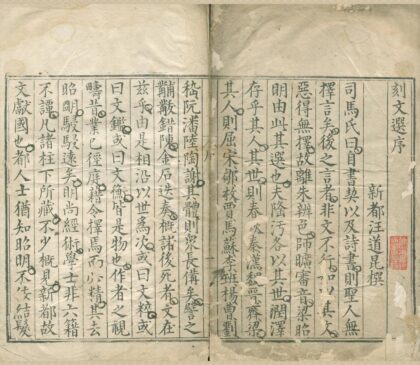 刻文選序
新都汪道昆撰
司馬氏曰自書契以及詩書則聖人無
擇言矣後之言者非文不行如以其文
惡得無擇故離朱辨色師曠審音梁昭
明由此其選也夫陰污冬以其世潤澤
存乎其人其世則春以秦漢
齊梁
其人則屈宋鄒枚賈馬蘇李班揚曹劉
嵇阮潘陸陶謝其體則眾長備矣譬之
黼黻錯陳金石迭奏概諸後死者文在
茲乎由是相沿以世為次或曰文粹或
曰文鑑或曰文衡皆是物也作者之視
疇昔業已徑庭藉令擇焉而
精其去
昭明駸駸遠矣時尚經術學士非六籍
不譚凡諸柱下所藏不少概見新都故
文獻國也都人士猶知昭明不佞結髮